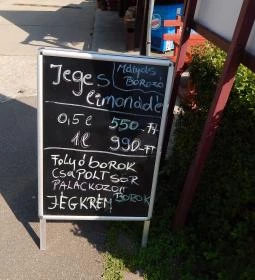 Jeges
Mátyás
Borozó
limonádé
0,5l 550.-Ft
1l 990.-Ft
Folyó borok
Csapolt sör
Palackozott
borok
Jégkrém